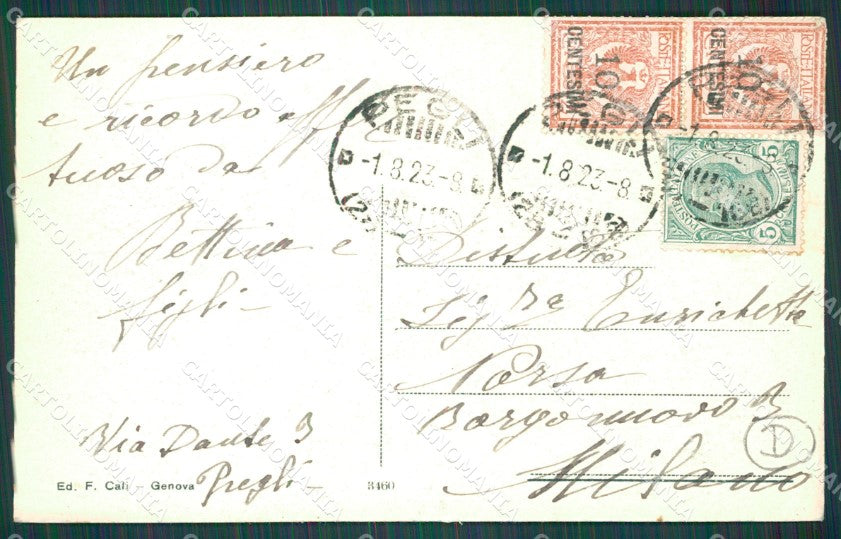 Un pensiero
e ricordo affet
tuoso da
Bettina e
figli
Via Dante 3
Pegli
Ed. F. Cali - Genova
3460
PEGLI
-1.8.23-8
PEGLI
-1.8.23-8
10
CENTESIMI
POSTE ITALIANE
10
CENTESIMI
POSTE ITALIANE
5
5
Distinta
Sig.ra Enrichetta
Norsa
Borgonuovo 3
Milano
D
CARTOLINOMANIA